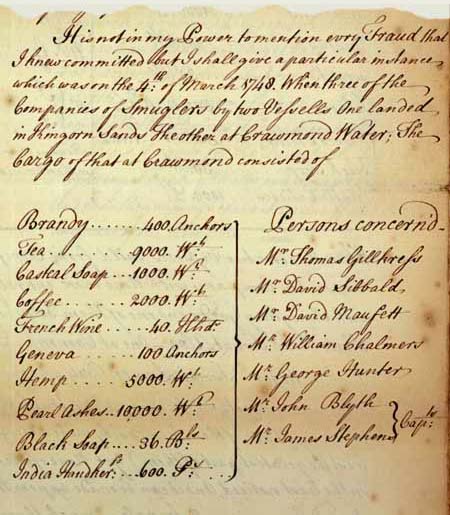 It is not in my Power to mention evry Fraud that
I knew committed but I shall give a particular instance
which was on the 4th of March 1748. When three of the
Companies of Smuglers by two Vessells One landed
in Kingorn Sands The other at Crawmond Water; The
Cargo of that at Crawmond consisted of
Brandy ....... 400. Anchors
Tea ........ 9000. Wt
Casteal Soap ... 1000. Wt
Coffee ....... 2000. Wt
French Wine .... 40. Hhds
Geneva ....... 100 Anchors
Hemp ....... 5000. Wt
Pearl Ashes .. 10,000. Wt
Black Soap .... 36. Bls
India Handkerfs .. 600. Ps
Persons concern'd
Mr. Thomas Gillkress
Mr. David Sibbald
Mr. David Maufett
Mr. William Chalmers
Mr. George Hunter
Mr. John Blyth
Mr. James Stephens
Capts